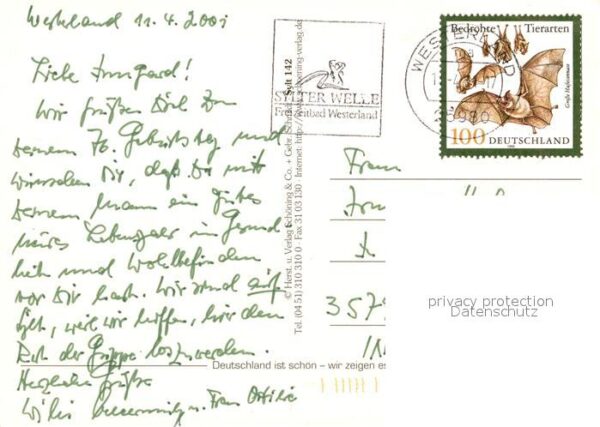 Westerland 11.4.2001
Liebe Irmgard!
Wir grüßen Dich zu
Deinem 76. Geburtstag und
wünschen Dir, daß Du mit
Deinem Mann ein gutes
neues Lebensjahr in Gesund
heit und Wohlbefinden
vor Dir hast. Wir sind auf
Sylt, weil wir hoffen, hier den
Rest der Grippe loszuwerden.
Herzliche Grüße
Frau
© Herst. u. Verlag Schöning & Co. + Gebr. Schmidt Sylt 142
Tel. (04 51) 310 310 0 · Fax 31 03 130 · Internet: http://www.schoening-verlag.de
SYLTER WELLE
Freizeitbad Westerland
WESTERLAND
25980
Bedrohte Tierarten
Große Hufeisennase
100 DEUTSCHLAND
Frau
357
privacy protection
Datenschutz
Deutschland ist schön – wir zeigen es